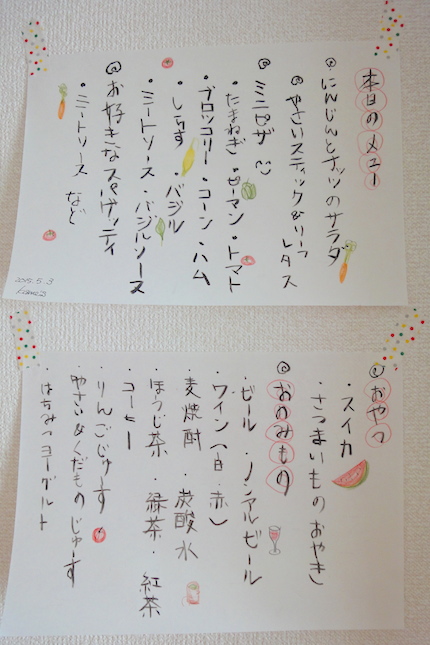 本日のメニュー
◎にんじんとナッツのサラダ
◎やさいスティック&リーフレタス
◎ミニピザ
・たまねぎ・ピーマン・トマト
・ブロッコリー・コーン・ハム
・しらす・バジル
・ミートソース・バジルソース
◎お好きなスパゲッティ
・ミートソース など
2015.5.3
◎おやつ
・スイカ
・さつまいものおやき
◎おのみもの
・ビール・ノンアルビール
・ワイン(白・赤)
・麦焼酎・炭酸水
・ほうじ茶・緑茶・紅茶
・コーヒー
・りんごじゅーす
・やさい&くだものじゅーす
・はちみつヨーグルト